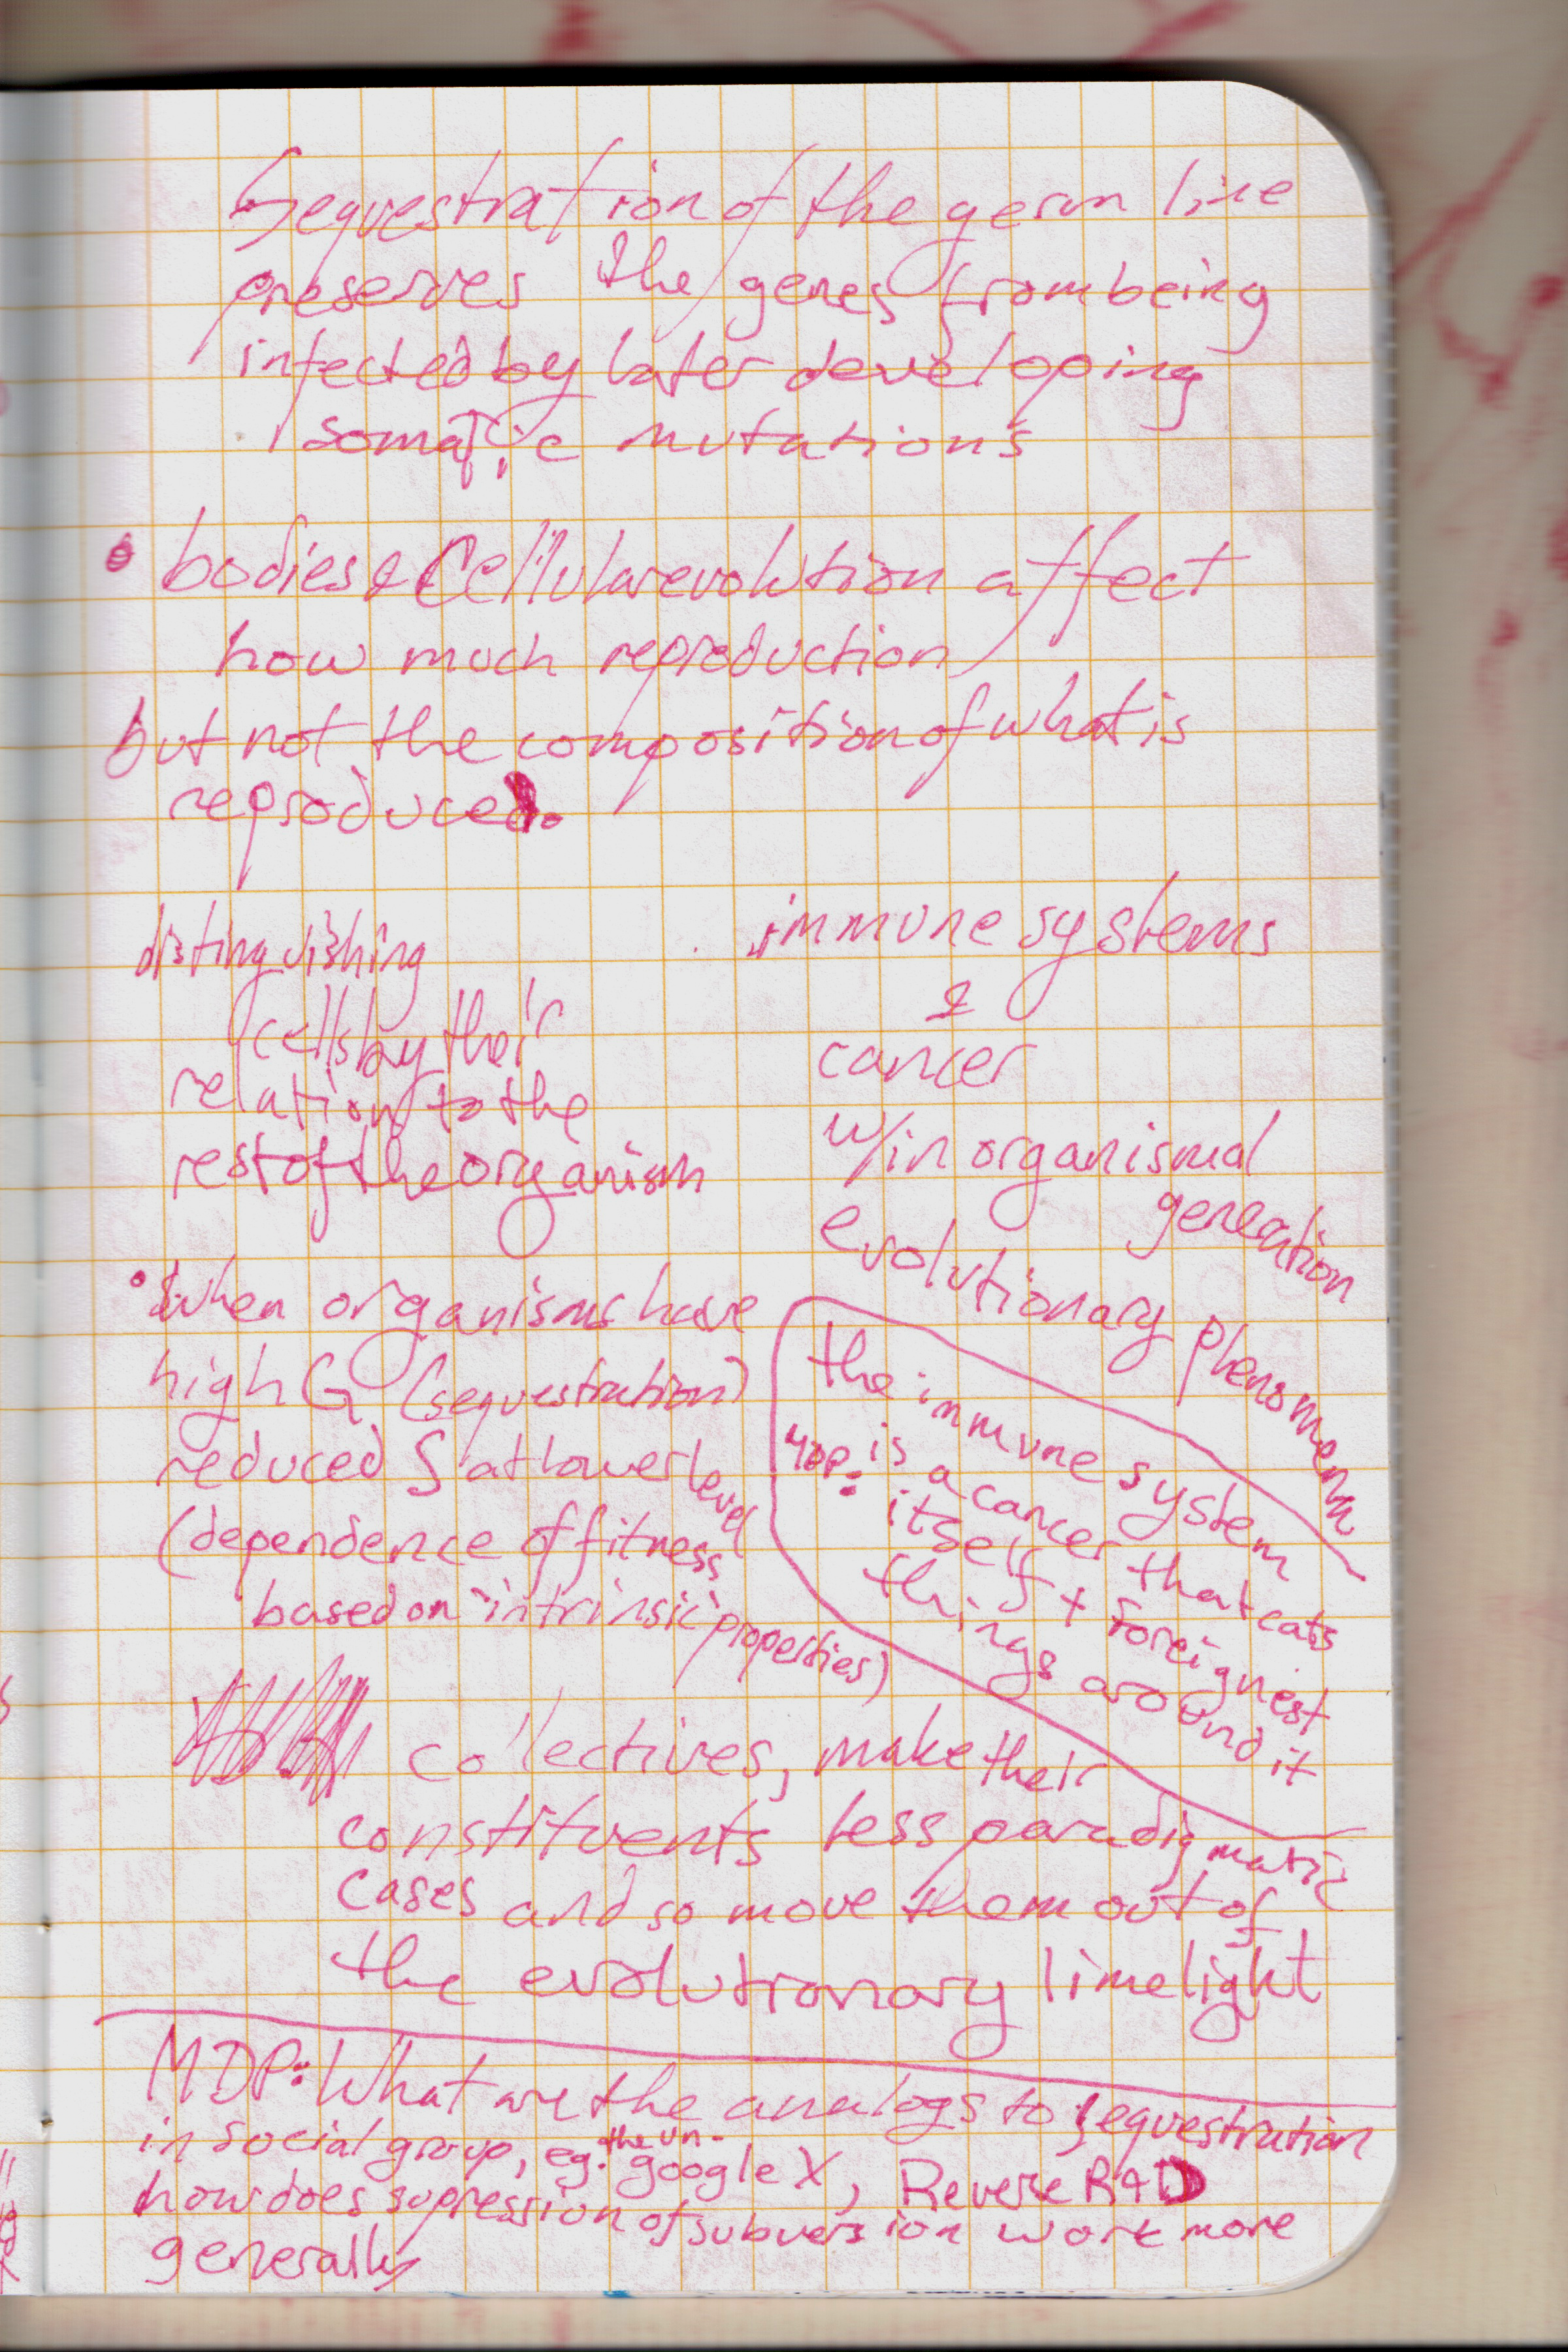 Sequestration of the germ line
preserves the genes from being
infected by later developing
somatic mutations
• bodies & Cellular evolution affect
how much reproduction
but not the composition of what is
reproduced.
distinguishing
cells by their
relation to the
rest of the organism
immune systems
&
cancer
w/in organismal
generation
evolutionary phenomena
• When organisms have
high G (sequestration)
reduced S at lower level
(dependence of fitness
based on intrinsic properties)
the immune system
is a cancer that eats
itself + foreignest
things around it
collectives, make their
constituents less paradigmatic
cases and so move them out of
the evolutionary limelight
MDP: What are the analogs to sequestration
in social group, eg. the un-
google X, Revere R&D
how does supression of subversion work more
generally